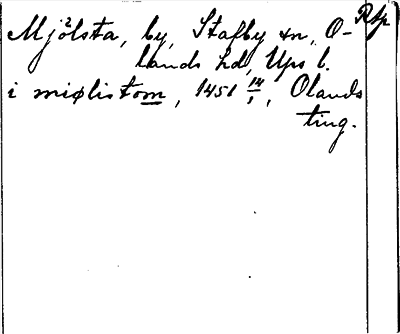 Mjölsta, by, Stafby sn, O- Rtp
lands hd, Ups l.
i miølistom, 1451 14/1, Olands
ting.